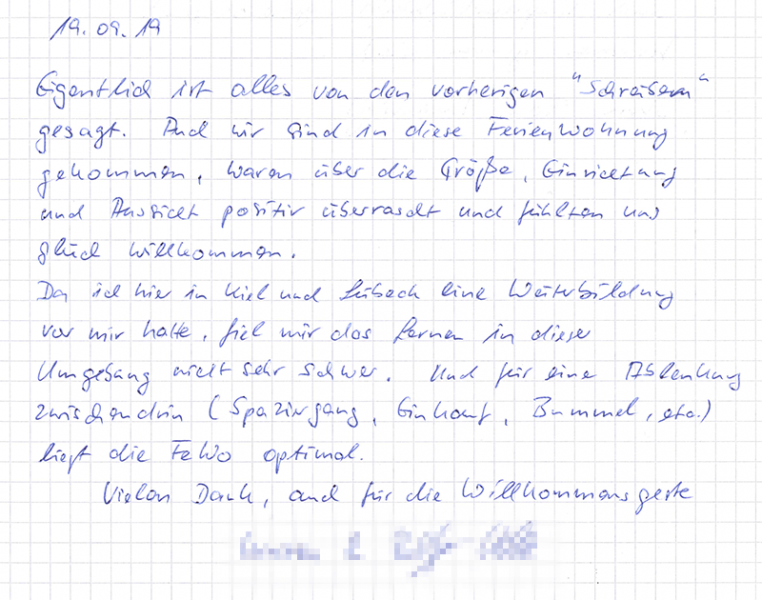 19.09.19
Eigentlich ist alles von den vorherigen "Schreibern"
gesagt. Auch wir sind in diese Ferienwohnung
gekommen, waren über die Größe, Einrichtung
und Aussicht positiv überrascht und fühlten uns
gleich willkommen.
Da ich hier in Kiel und Lübeck eine Weiterbildung
vor mir hatte, fiel mir das Lernen in dieser
Umgebung nicht sehr schwer. Und für eine Ablenkung
zwischendrin (Spaziergang, Einkauf, Bummel, etc.)
liegt die FeWo optimal.
Vielen Dank, auch für die Willkommensgeste